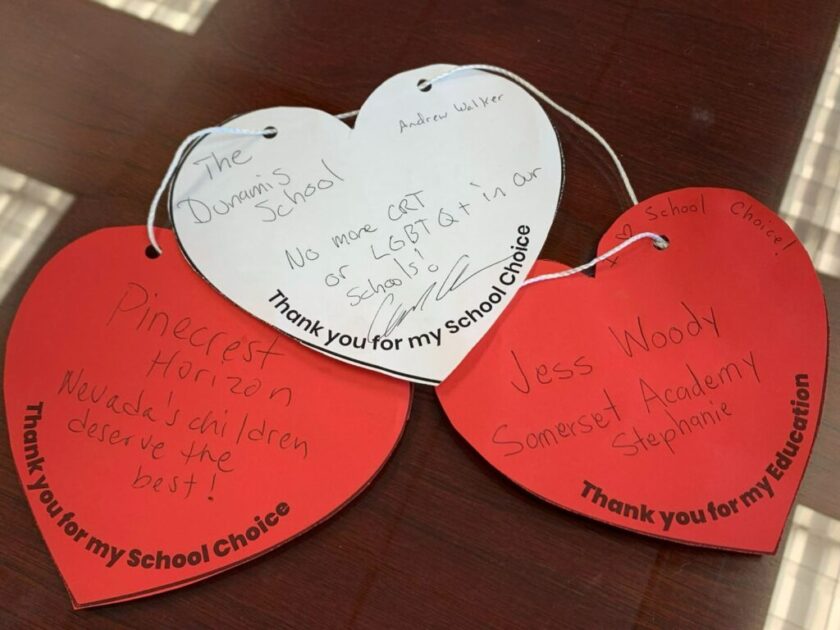 The
Dunamis
School
Andrew Walker
No more CRT
or LGBTQ+ in our
Schools!
Thank you for my School Choice
Pinecrest
Horizon
Nevada's children
deserve the
best!
Thank you for my School Choice
School Choice!
Jess Woody
Somerset Academy
Stephanie
Thank you for my Education